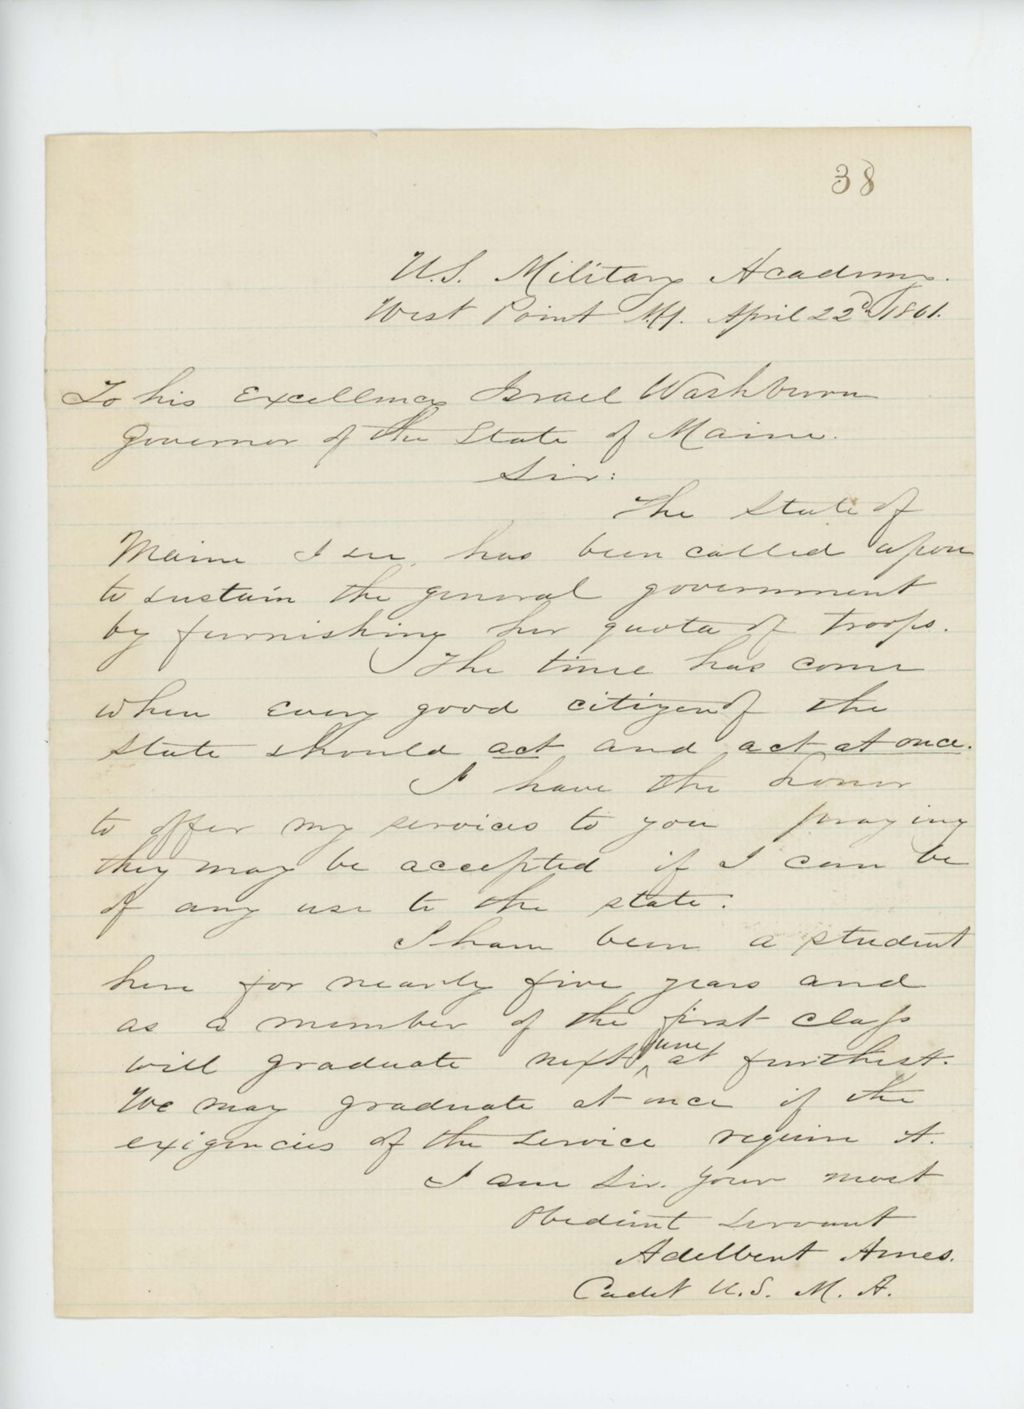 38
U.S. Military Academy.
West Point N.Y. April 22d 1861.
To his Excellency Israel Washburn
Governor of the State of Maine.
Sir:
The State of
Maine I see, has been called upon
to sustain the general government
by furnishing her quota of troops.
The time has come
when every good citizen of the
state should act and act at once.
I have the honor
to offer my services to you praying
they may be accepted if I can be
of any use to the state.
I have been a student
here for nearly five years and
as a member of the first class
will graduate next June at furthest.
We may graduate at once if the
exigencies of the service require it.
I am Sir. Your most
Obedient Servant
Adelbert Ames.
Cadet U.S. M. A.